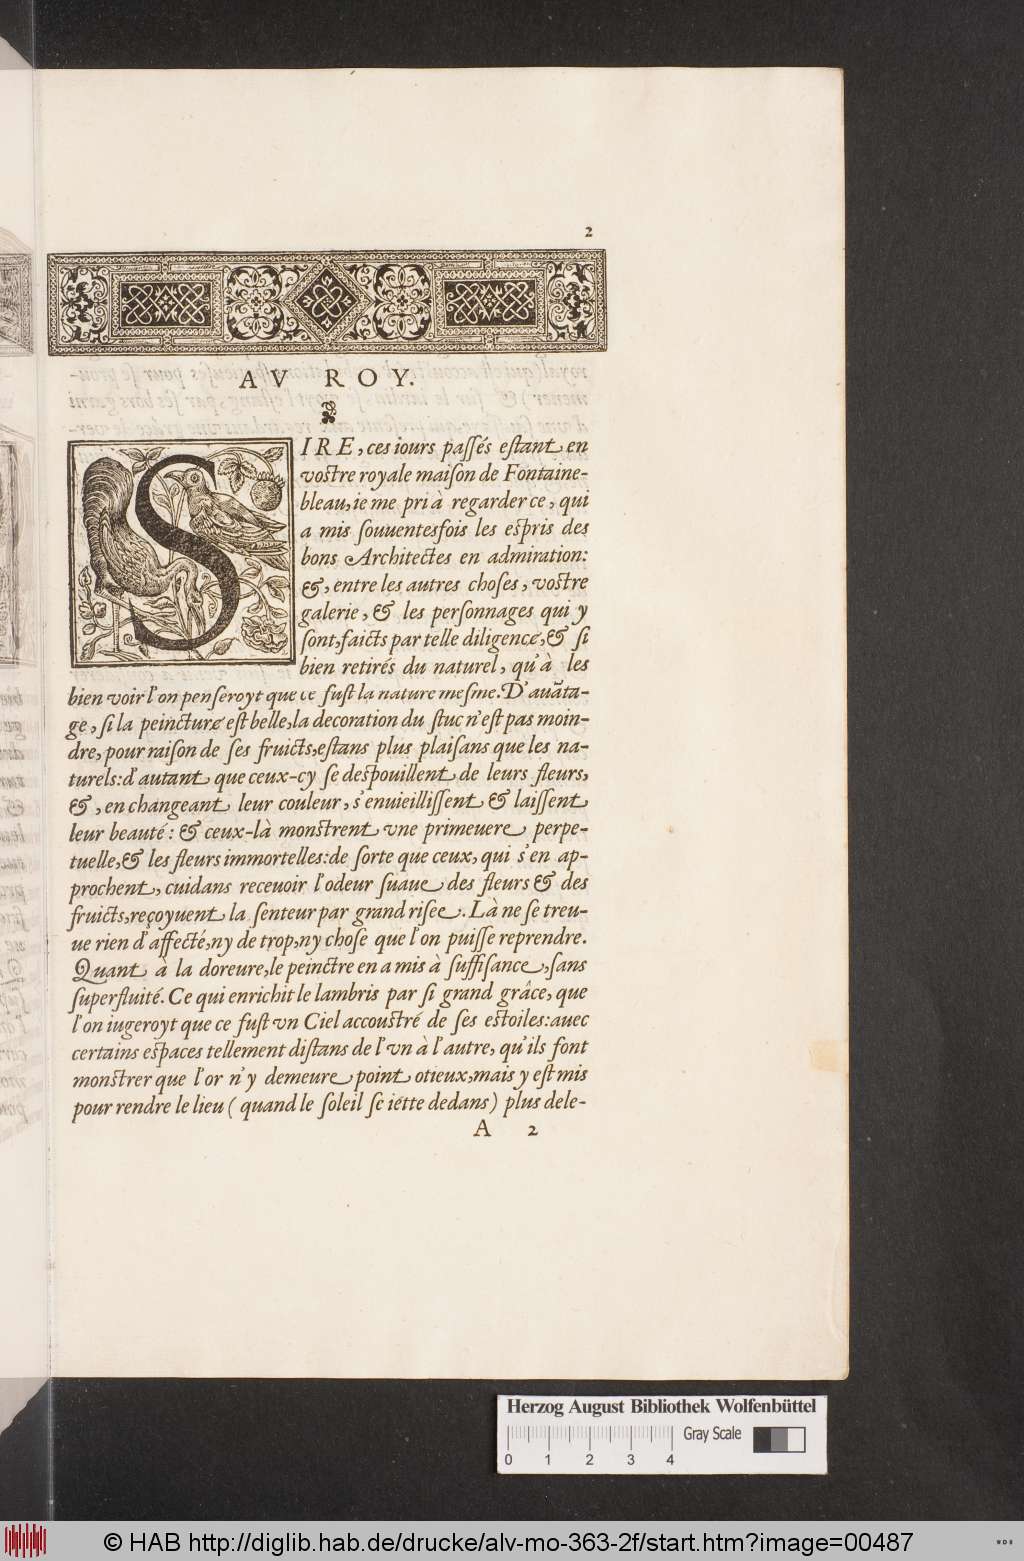 2
AV ROY.
SIRE, ces iours paſſés eſtant en
voſtre royale maiſon de Fontaine-
bleau, ie me pri à regarder ce, qui
a mis ſouuentesfois les eſpris des
bons Architectes en admiration:
&, entre les autres choſes, voſtre
galerie, & les perſonnages qui y
ſont, faicts par telle diligence, & ſi
bien retirés du naturel, qu'à les
bien voir l'on penſeroyt que ce fuſt la nature meſme. D'auãta-
ge, ſi la peincture eſt belle, la decoration du ſtuc n'eſt pas moin-
dre, pour raiſon de ſes fruicts, eſtans plus plaiſans que les na-
turels: d'autant que ceux-cy ſe deſpouillent de leurs fleurs,
&, en changeant leur couleur, s'enuieilliſſent & laiſſent
leur beauté: & ceux-là monſtrent vne primeuere perpe-
tuelle, & les fleurs immortelles: de ſorte que ceux, qui s'en ap-
prochent, cuidans receuoir l'odeur ſuaue des fleurs & des
fruicts, reçoyuent la ſenteur par grand riſee. Là ne ſe treu-
ue rien d'affecté, ny de trop, ny choſe que l'on puiſſe reprendre.
Quant à la doreure, le peinctre en a mis à ſuffiſance, ſans
ſuperfluité. Ce qui enrichit le lambris par ſi grand grâce, que
l'on iugeroyt que ce fuſt vn Ciel accouſtré de ſes eſtoiles: auec
certains eſpaces tellement diſtans de l'vn à l'autre, qu'ils font
monſtrer que l'or n'y demeure point otieux, mais y eſt mis
pour rendre le lieu (quand le ſoleil ſe iette dedans) plus dele-
A 2
Herzog August Bibliothek Wolfenbüttel
Gray Scale
0 1 2 3 4
© HAB http://diglib.hab.de/drucke/alv-mo-363-2f/start.htm?image=00487